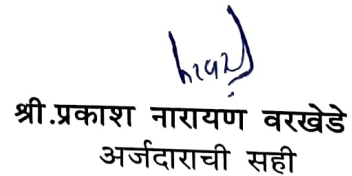 श्री.प्रकाश नारायण वरखेडे
अर्जदाराची सही